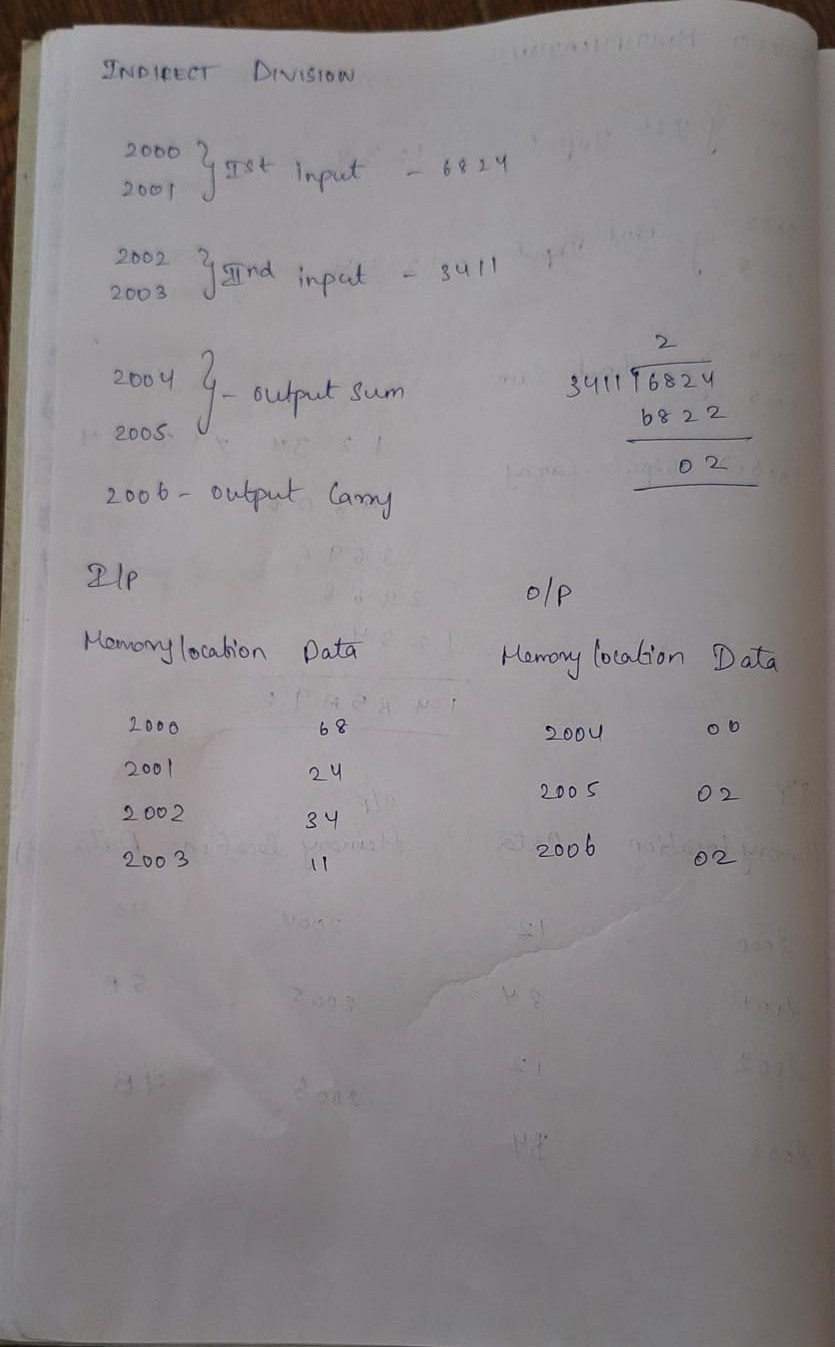 INDIRECT DIVISION
2000
2001 } Ist input - 6824
2002
2003 } IInd input - 3411
2004
2005 } - output sum
2006 - output Carry
2
3411 6824
6822
02
I/P
Memory location Data
2000 68
2001 24
2002 34
2003 11
O/P
Memory location Data
2004 00
2005 02
2006 02